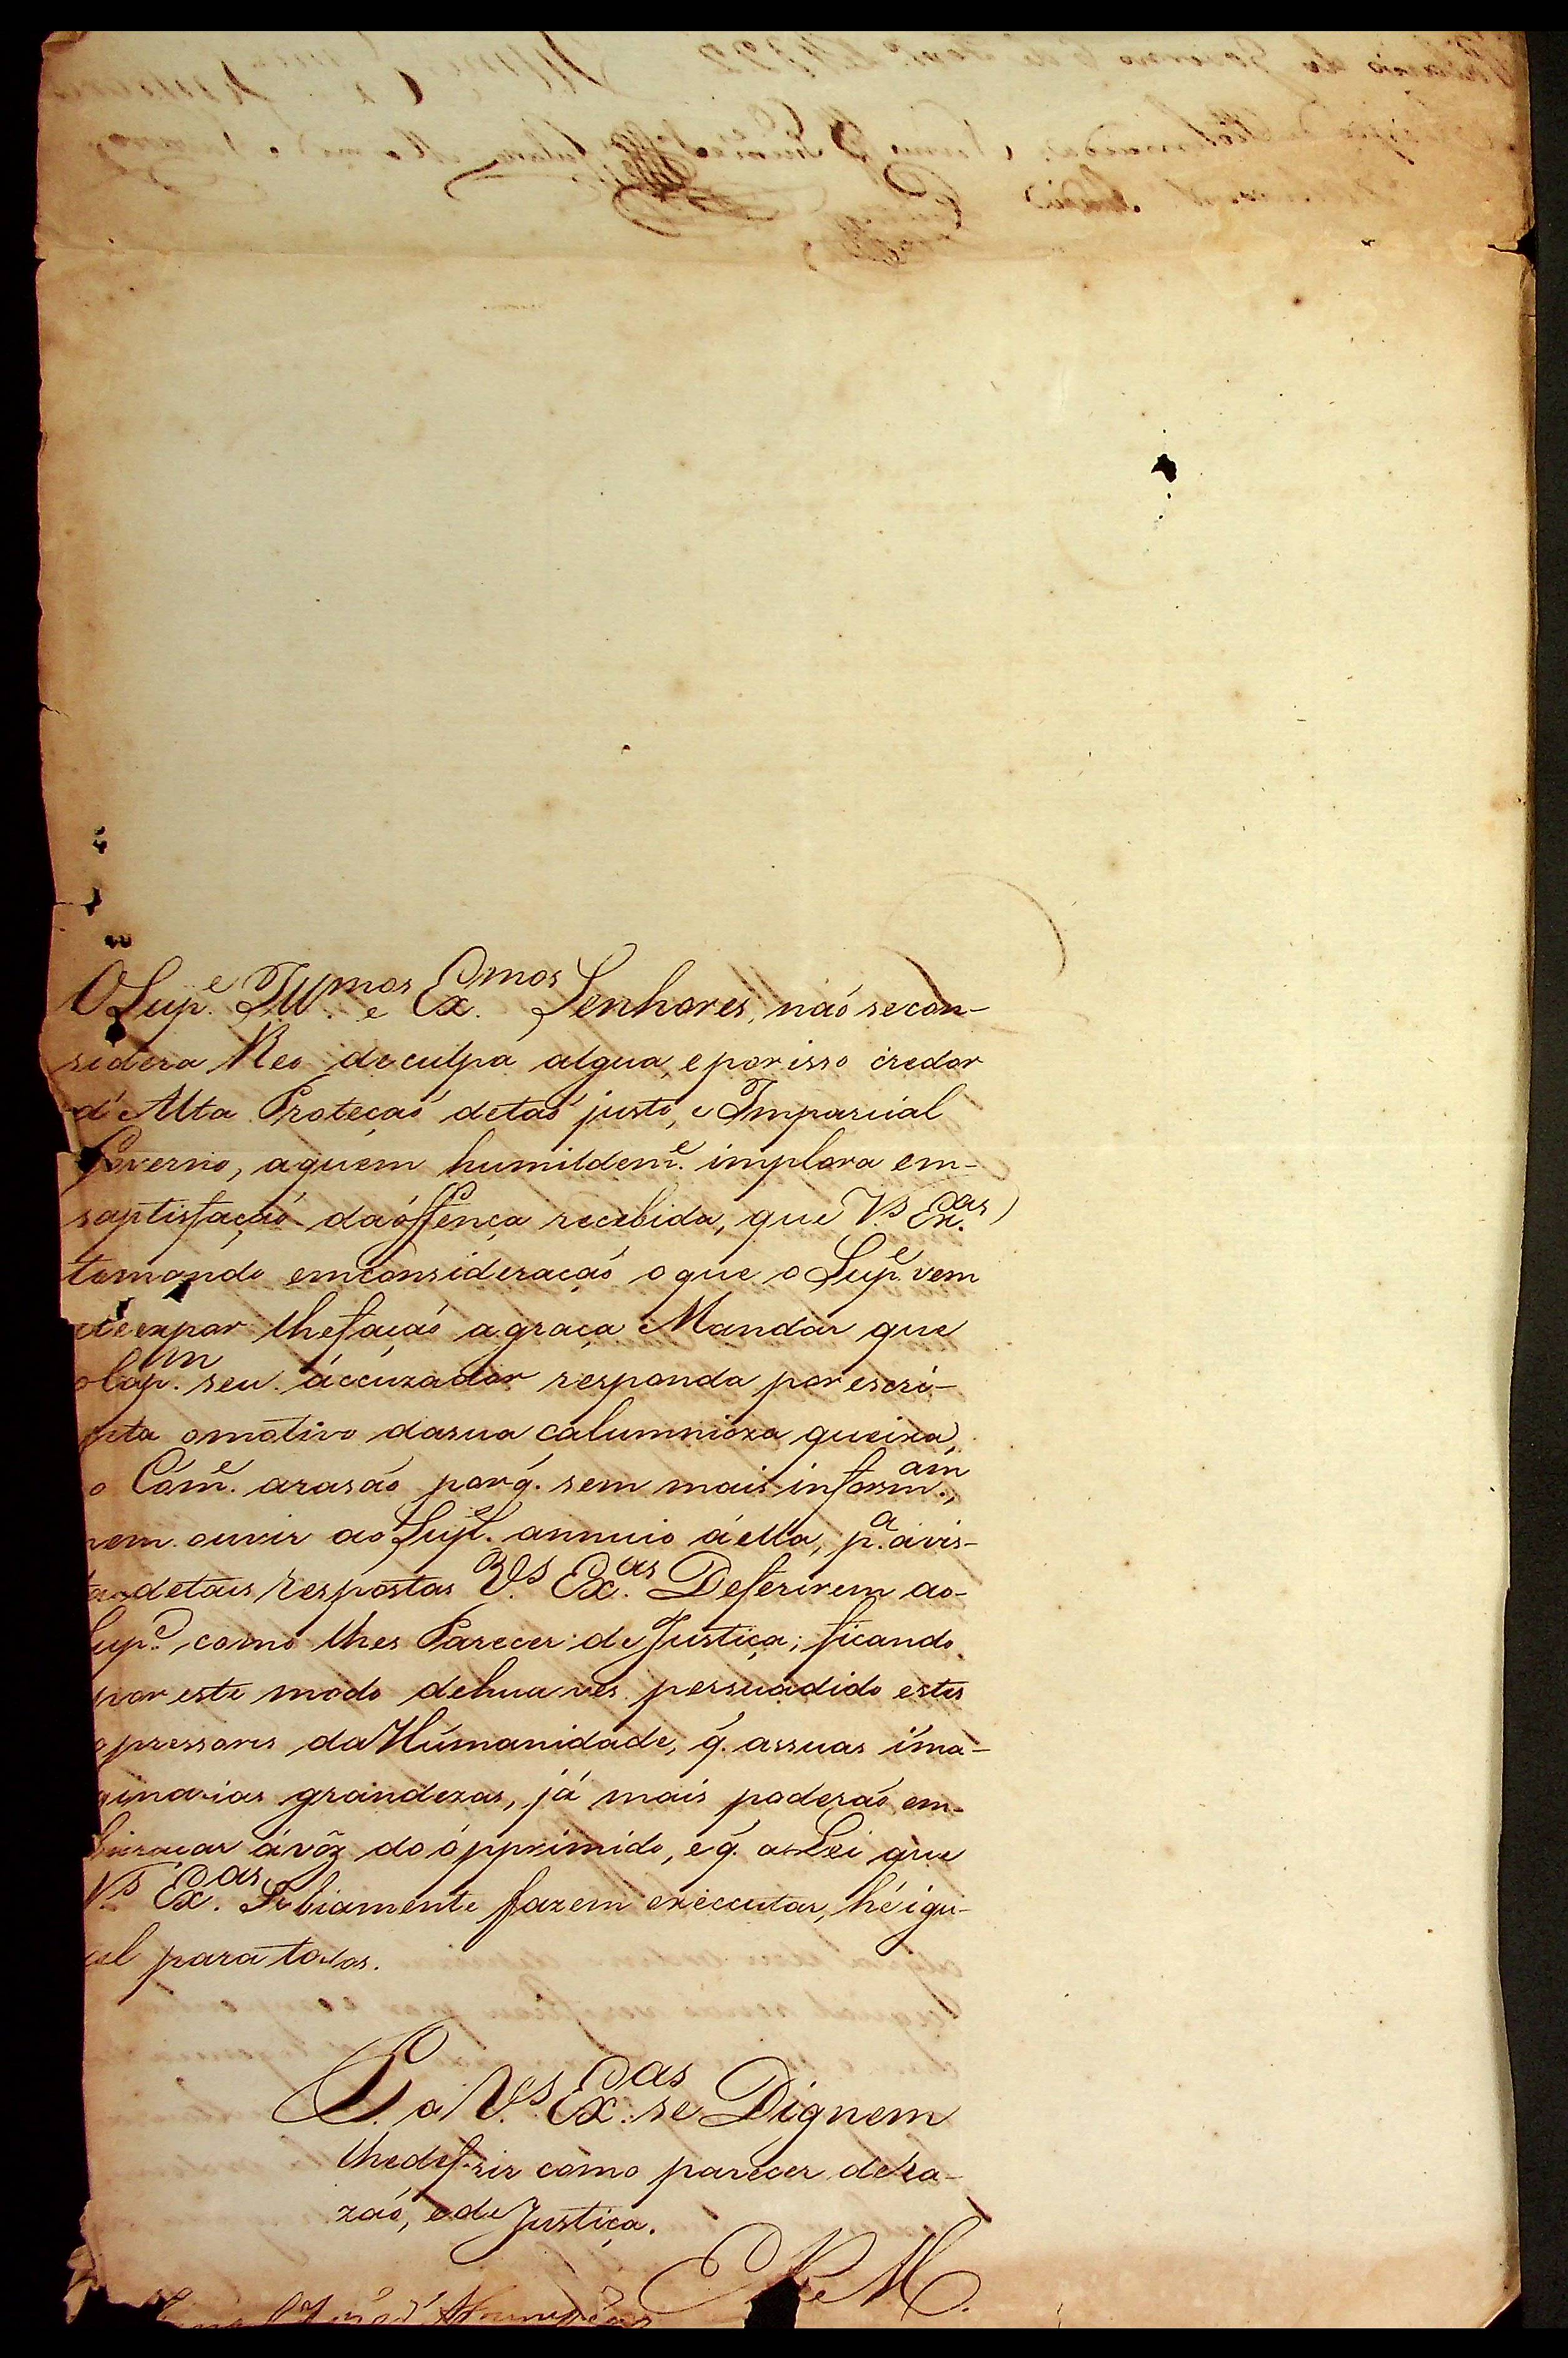 O Sup.e Ill.mos e Ex.mos Senhores, naó secon-
sidera Reo deculpa algua, eporisso credor
d'Alta Proteçaó detaó justo, e Imparcial
Governo, aquem humildem.e implora em-
saptisfaçaó daóffença recebida, que V.s Ex.as
tomando emconsideraçaó oque o Sup.e vem
deexpor lhefaçaó agraça Mandar que
oCap.m seu áccuzador responda porescri-
pta omotivo dasua calumnioza queixa,
o Cóm.e arasaó porq. sem mais inform.am,
nem ouvir ao Supl.e annuio áella, p.a ávis-
ta detais respostas V.s Ex.as Deferirem ao-
Sup.e como lhes Parecer de Justiça; ficando
poreste modo dehua ves persuadido estes
opressores daHumanidade, q. assuas ima-
ginarias grandezas, já mais poderaó em-
baraçar ávõz do ópprimido, eq. a Lei que
V.s Ex.as Sabiamente fazem executar, hé igu-
al para todos.
P. a V.s Ex.as se Dignem
lhedeferir como parecer dera-
zaó, ede Justiça.
E R M.